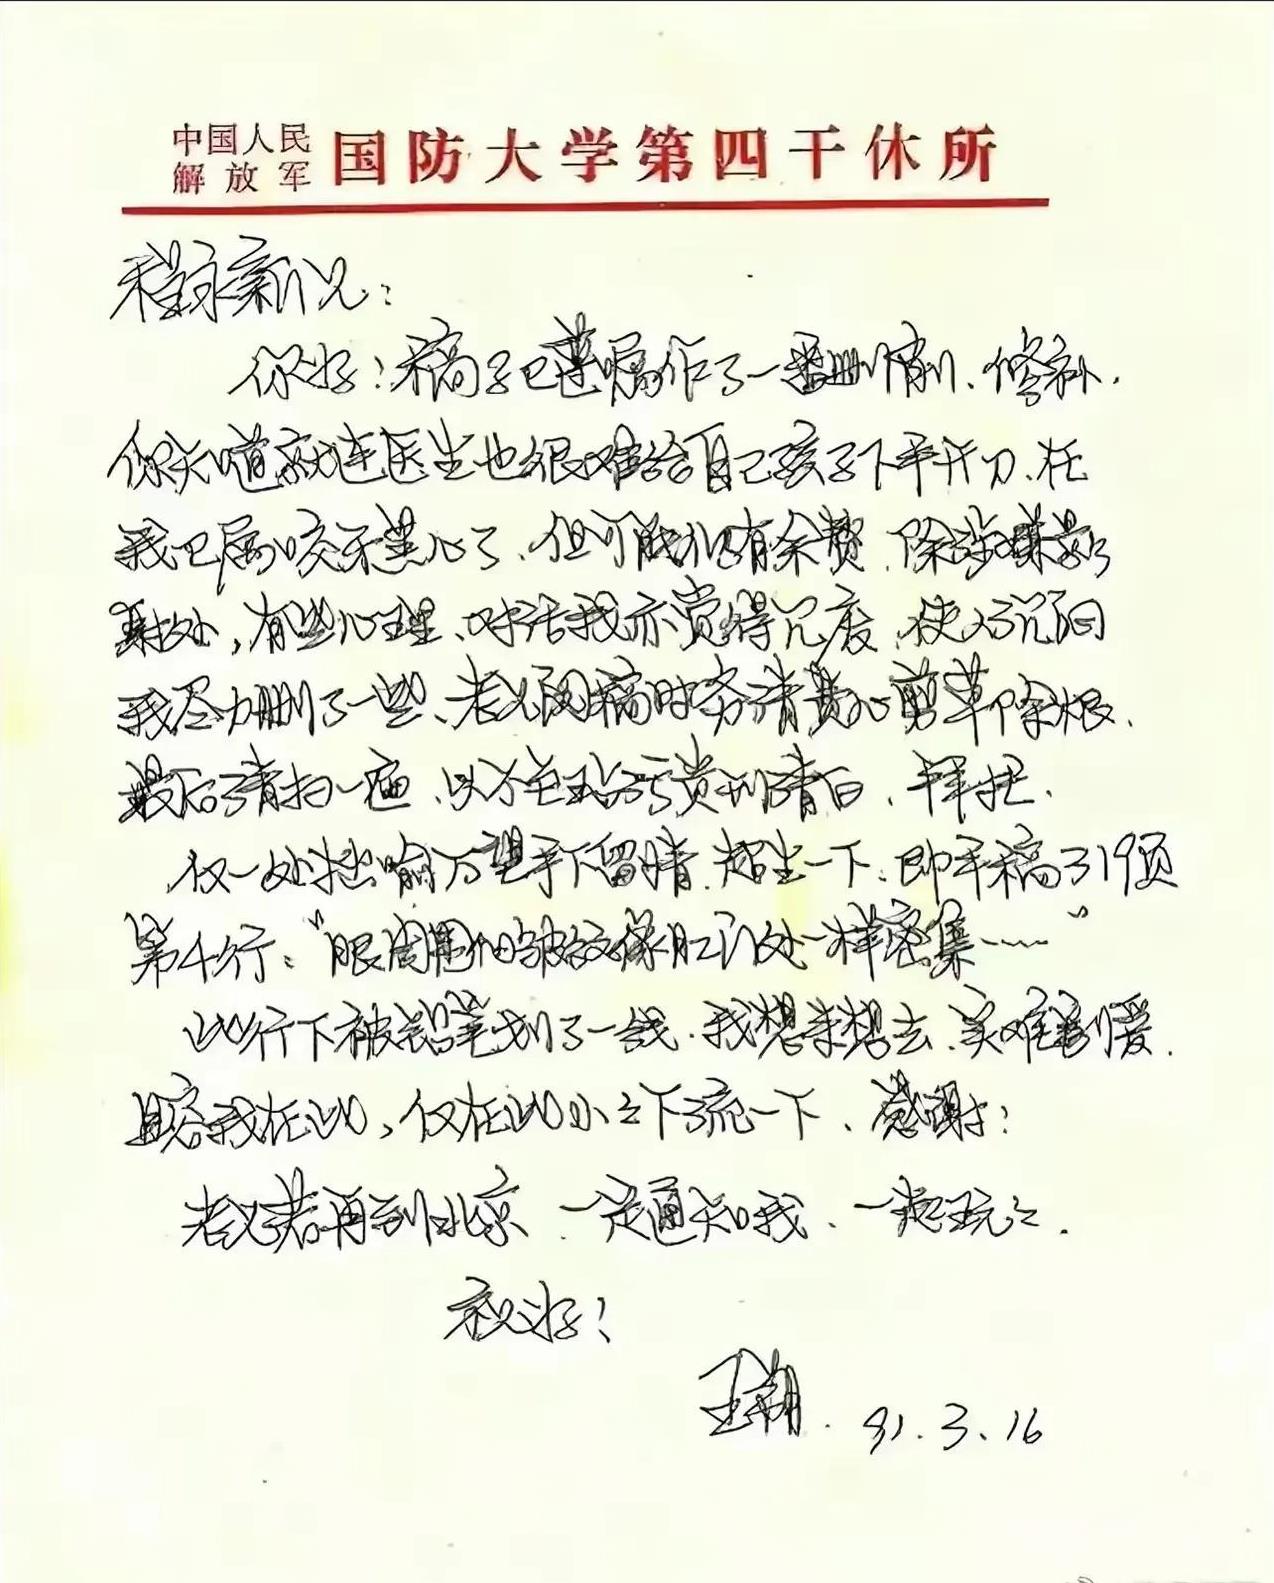 中国人民
解放军
国防大学第四干休所
程永新兄:
你好!稿子已遵嘱作了一番删削、修补.
你知道就连医生也很难给自己孩子下手开刀、在
我已属咬牙黑心了、但可能仍有余赘.除涉嫌影
射处,有些心理、对话我亦觉得冗废、使人沉闷
我尽力删了一些、老兄阅稿时务请费心剪草除根.
最后清扫一遍、以不至玷污贵刊清白、拜托.
仅一处拙喻万望手下留情.超生一下、即手稿了19页
第4行:"眼周围的皱纹像肛门处一样密集……"
此行下被铅笔划了一线.我想来想去、实难割爱.
且容我在此,仅在此小小下流一下、感谢!
老兄若再到北京、一定通知我、一起玩玩.
祝好!
王朔.91.3.16